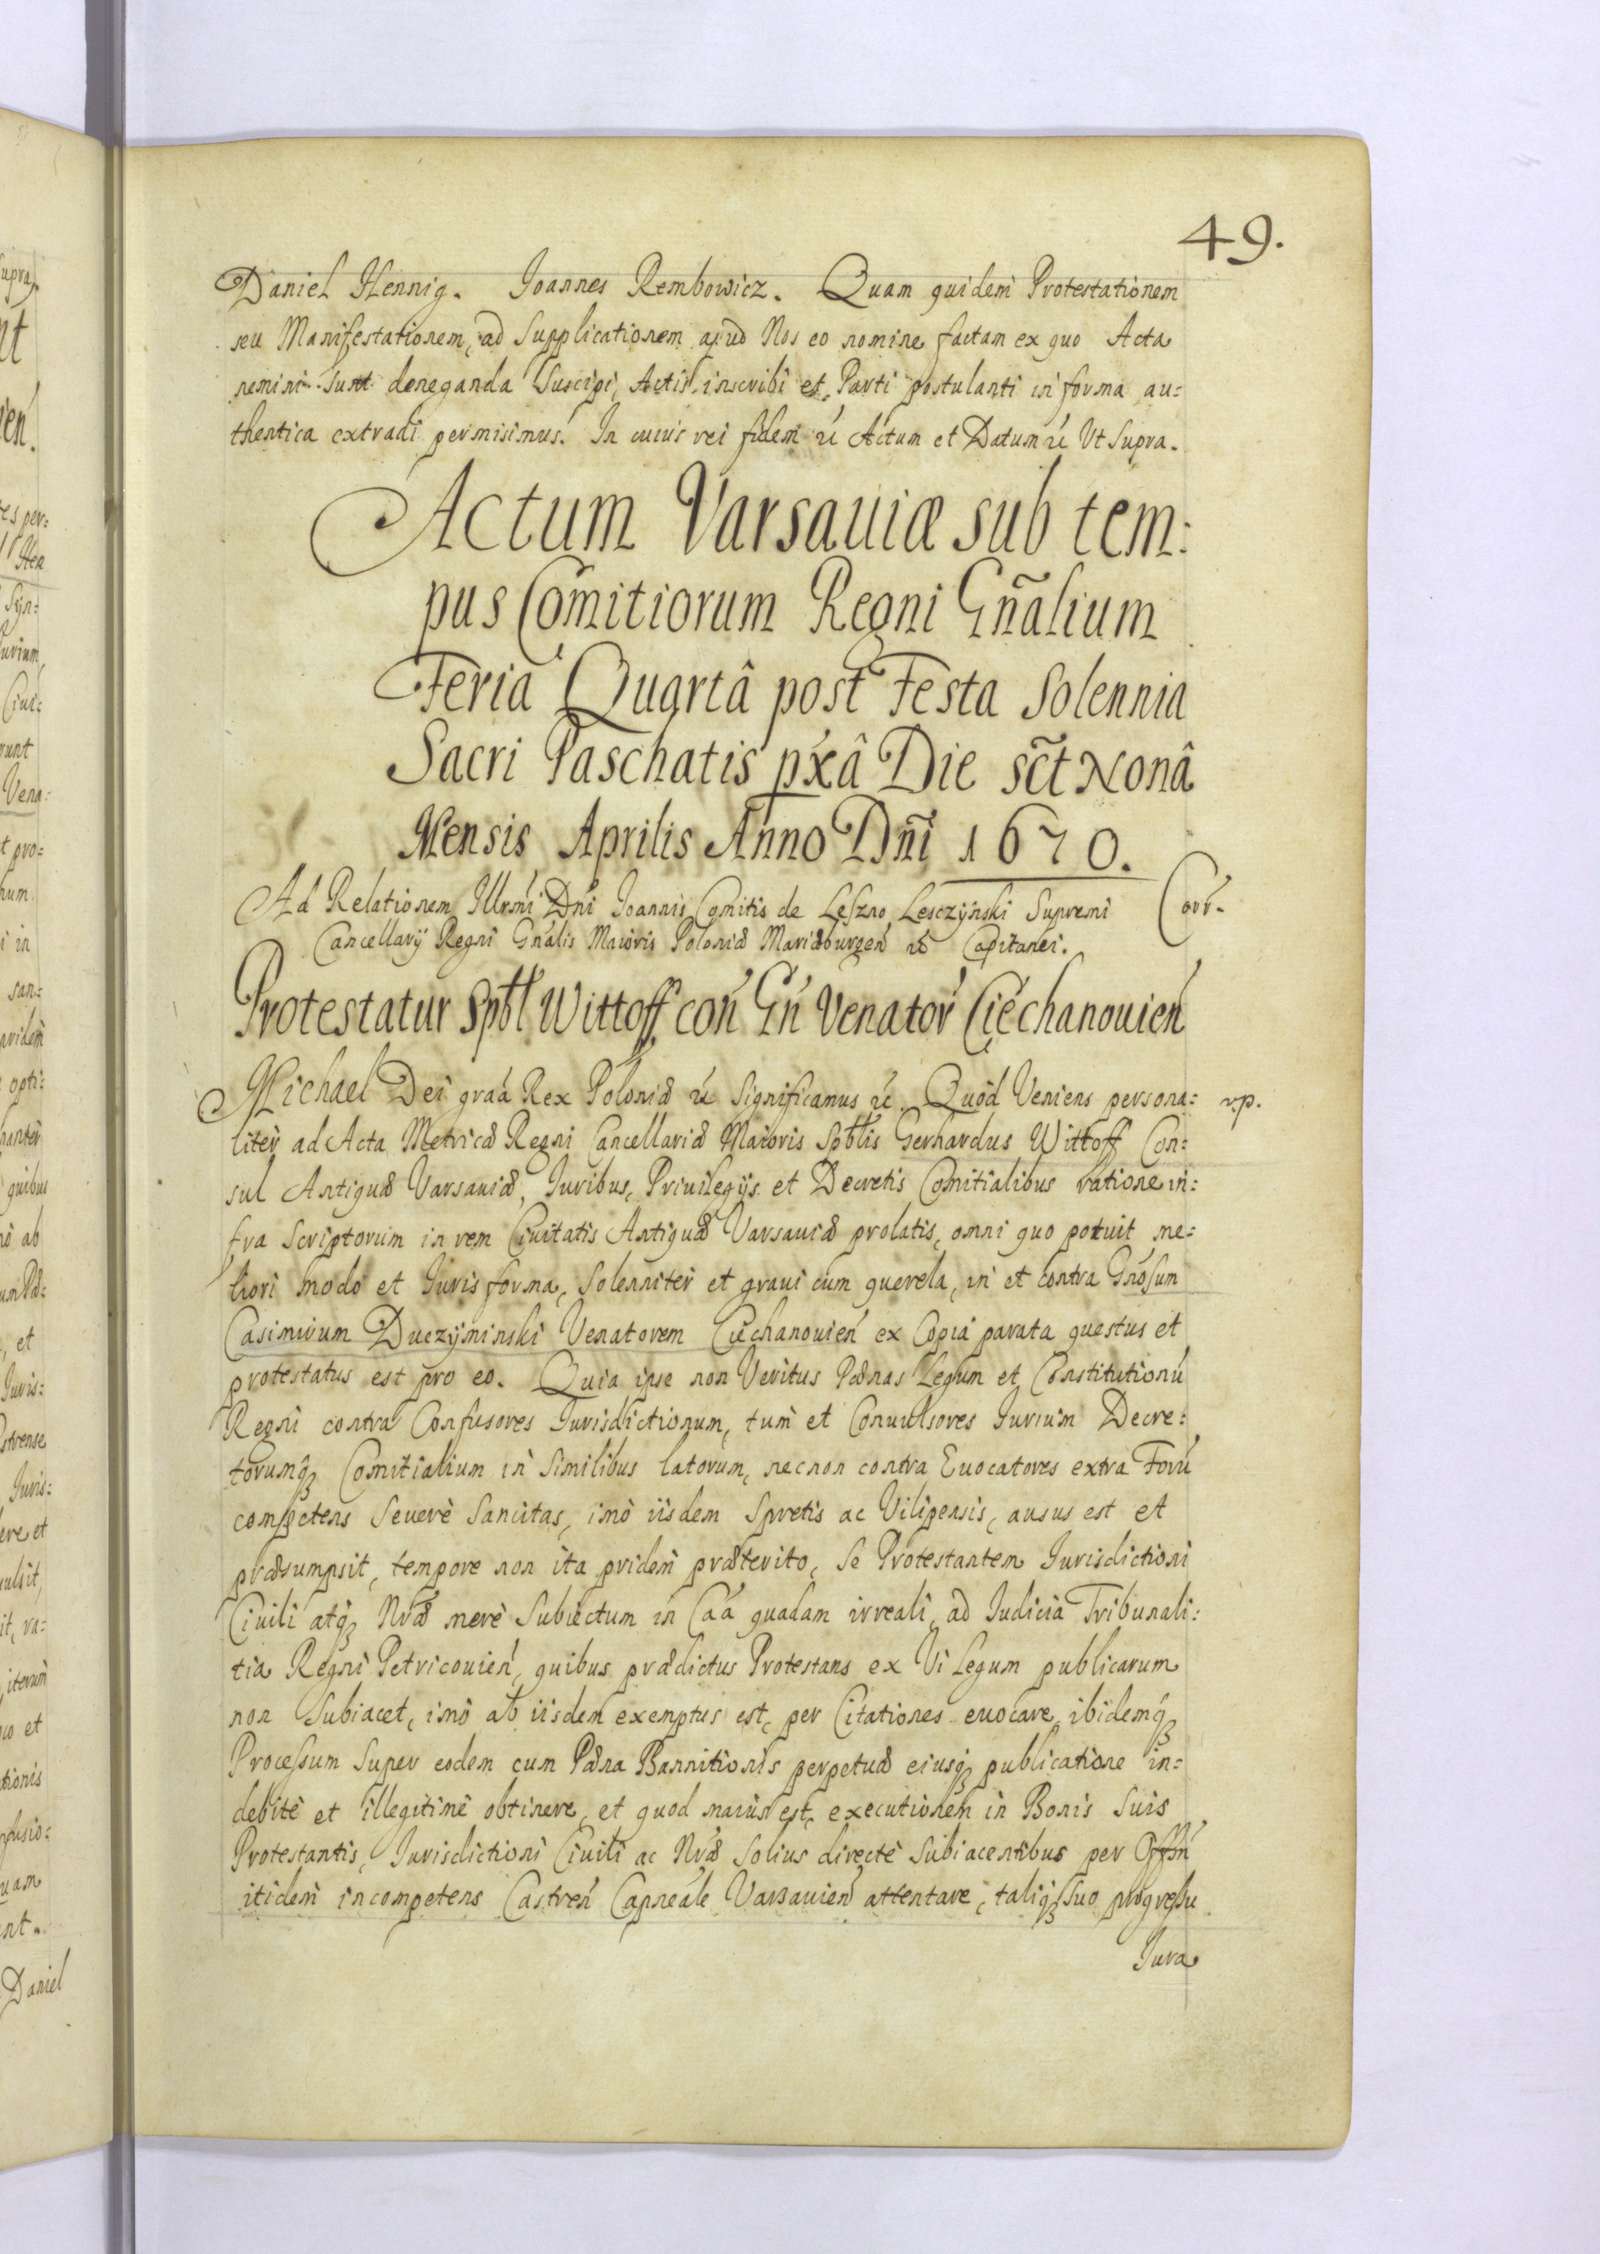 49.
Daniel Hennig. Joannes Rembowicz. Quam quidem Protestationem
seu Manifestationem, ad Supplicationem apud Nos eo nomine factam ex quo Acta
nemini sunt deneganda Suscipi, Actis inscribi et Parti postulanti in forma au:
thentica extradi permisimus. In cuius rei fidem &c Actum et Datum &c Ut Supra.
Actum Varsaviæ sub tem:
pus Com̃itiorum Regni Gñalium
Feria Quartâ post Festa Solennia
Sacri Paschatis pxâ Die sct Nonâ
Mensis Aprilis Anno Dñi 1670.
Ad Relationem Illrmi Dni Joannis Comitis de Leszno Lesczynski Supremi
Cancellarij Regni Gnalis Maioris Poloniæ Mariæburgen &c Capitanei.
Corr.
Protestatur Spbl Wittoff con Gn Venator Ciechanovien
Michael Dei graa Rex Poloniæ &c Significamus &c Quod Veniens persona:
rp.
liter ad Acta Metricæ Regni Cancellariæ Maioris Spbtlis Gerhardus Wittoff Con:
sul Antiquæ Varsaviæ, Juribus, Privilegijs et Decretis Comitialibus ratione in:
fra Scriptorum in rem Civitatis Antiquæ Varsaviæ prolatis, omni quo potuit me:
liori modo et Juris forma, Solenniter et gravi cum querela, in et contra Gnosum
Casimirum Duczyminski Venatorem Ciechanovien ex Copia parata questus et
protestatus est pro eo. Quia ipse non Veritus Pænas Legum et Constitutionũ
Regni contra Confusores Jurisdictionum, tum et Convulsores Jurium Decre:
torumq Comitialium in Similibus latorum, necnon contra Evocatores extra Forũ
competens Severè Sancitas, imò iisdem Spretis ac Vilipensis, ausus est et
præsumpsit, tempore non ita pridem præterito, Se Protestantem Jurisdictioni
Civili atq Nræ merè Subiectum in Caa quadam irreali, ad Judicia Tribunali:
tia Regni Petricovien, quibus prædictus Protestans ex Vi Legum publicarum
non Subiacet, imò ab iisdem exemptus est, per Citationes evocare, ibidemq
Processum Super eodem cum Pæna Bannitionis perpetuæ eiusq publicatione in:
debitè et illegitimè obtinere, et quod maius est, executionem in Bonis Suis
Protestantis, Jurisdictioni Civili ac Nræ Solius directè Subiacentibus per Offm
itidem incompetens Castren Capneale Varsavien attentare, taliq suo progressu
Jura